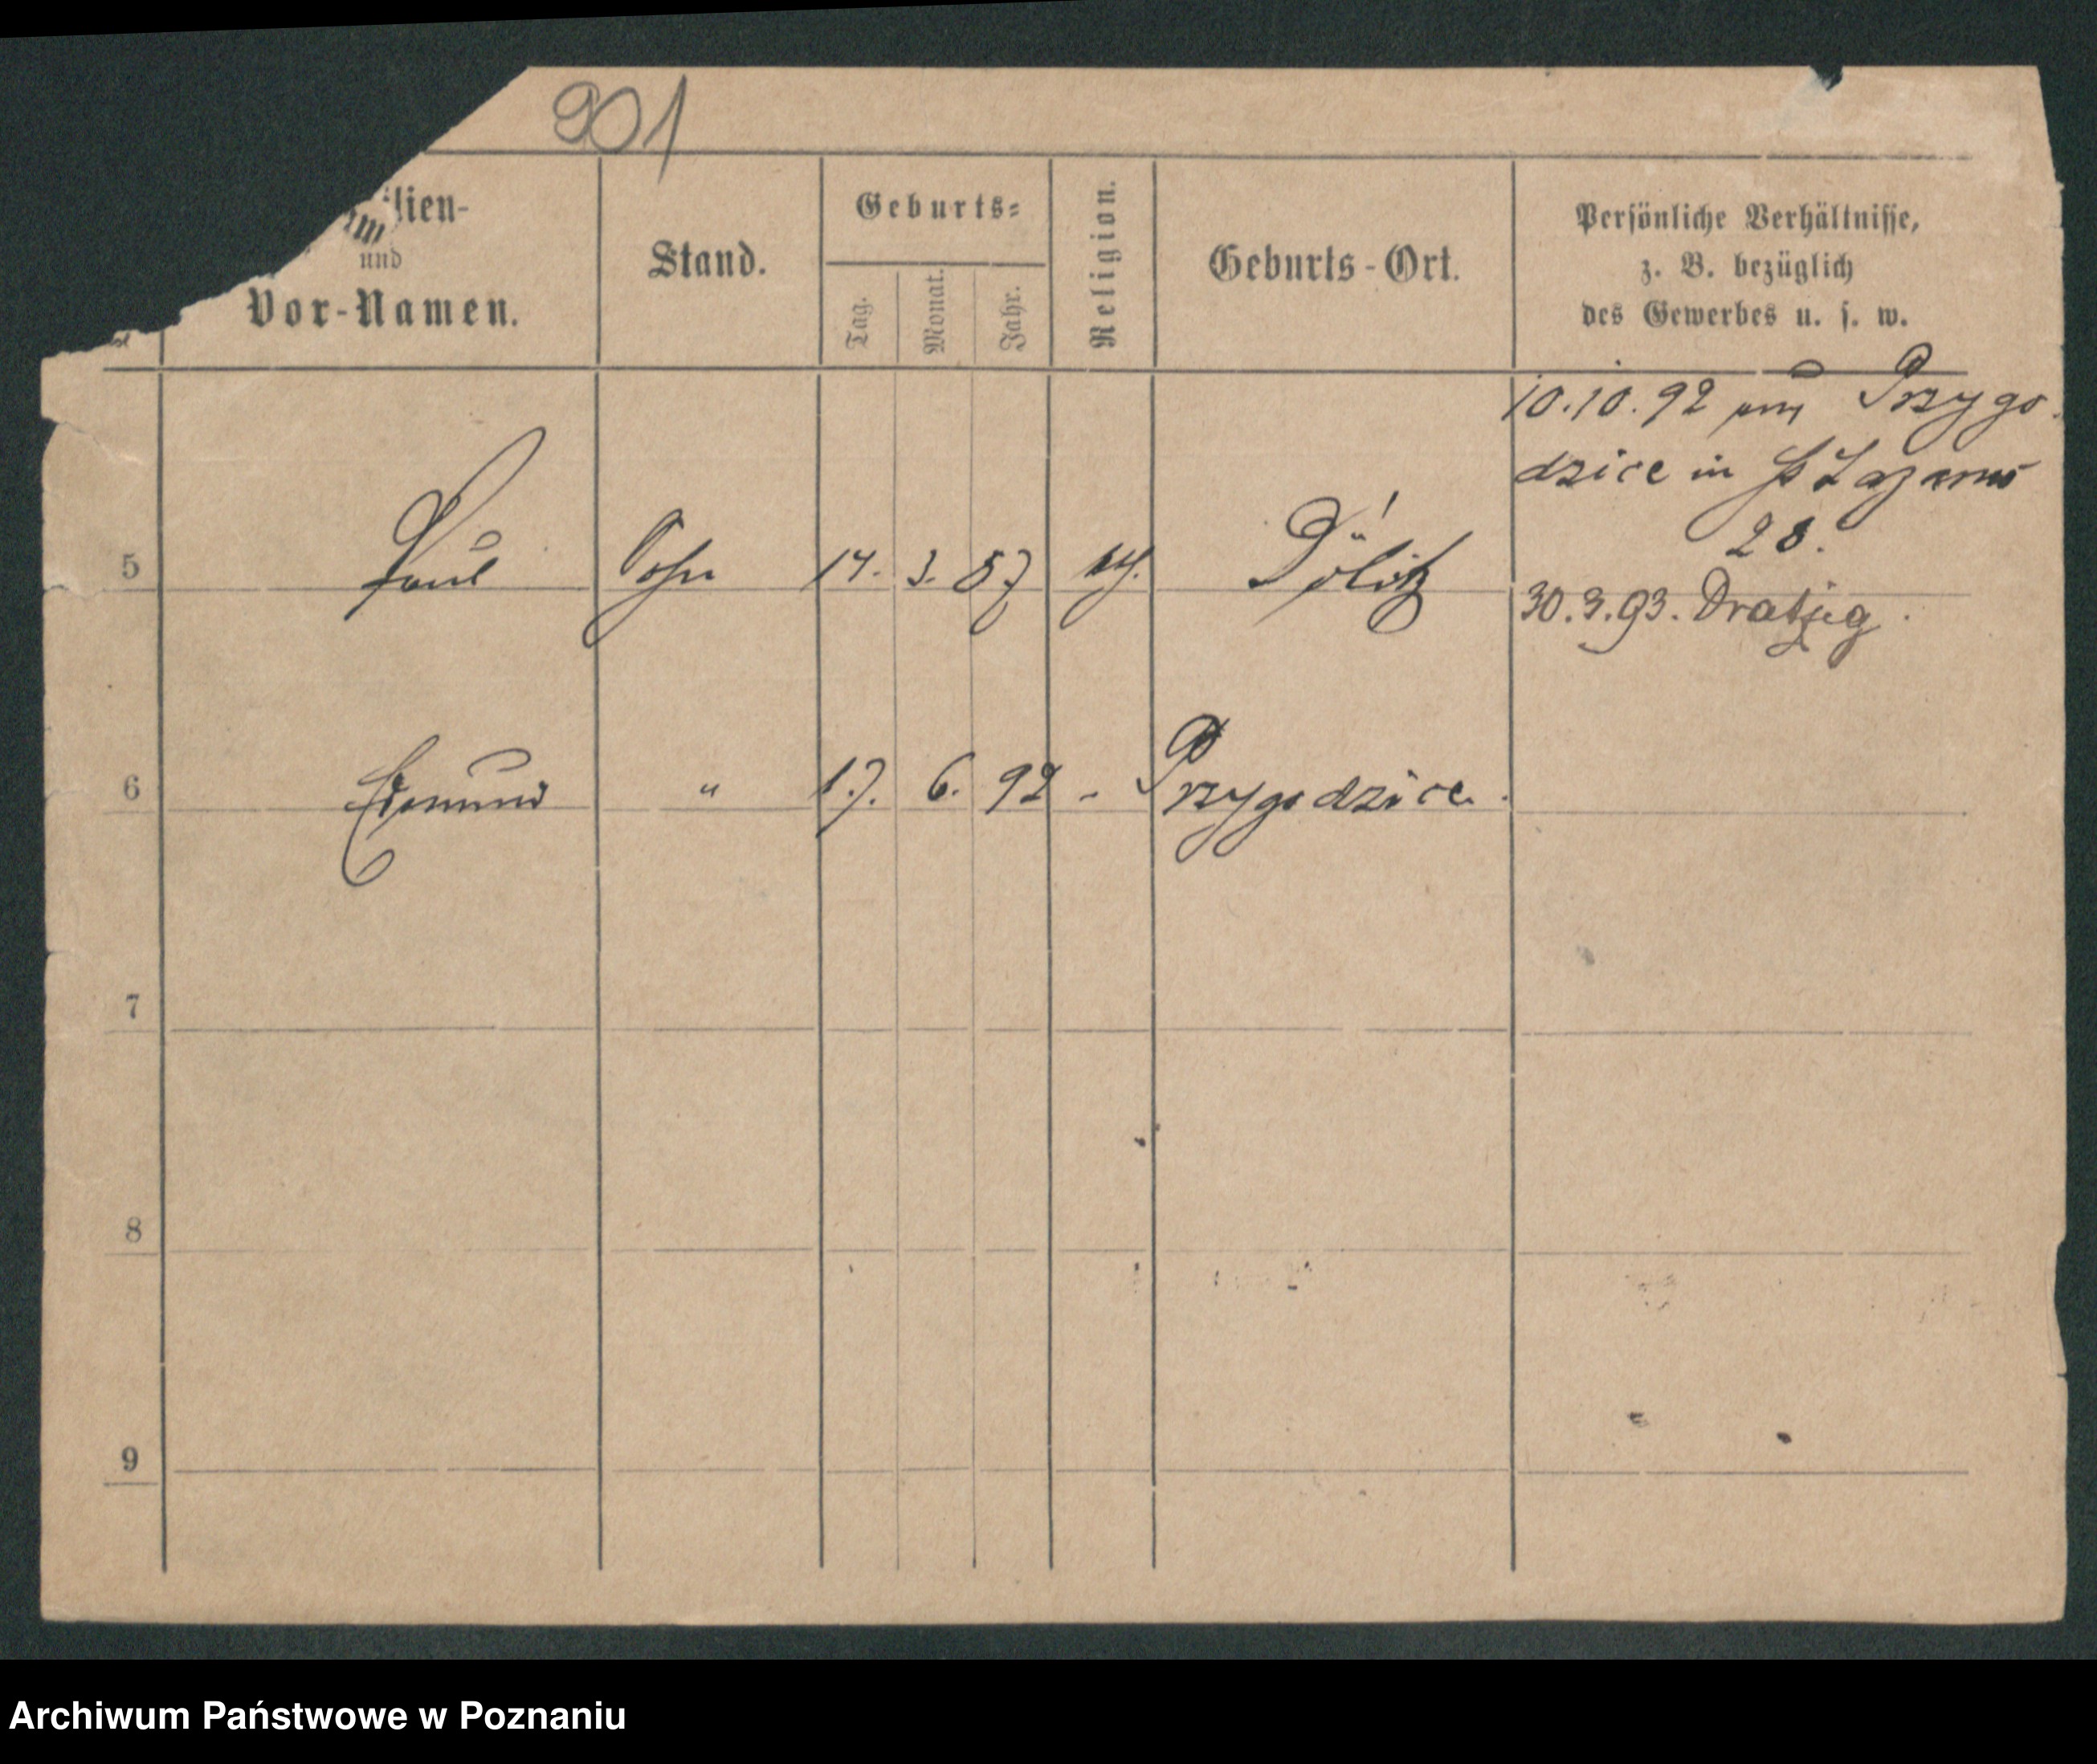 901
ilien-
und
Vor-Namen.
Stand.
Geburts-
Tag.
Monat.
Jahr.
Religion.
Geburts-Ort.
Persönliche Verhältnisse,
z. B. bezüglich
des Gewerbes u. s. w.
10.10.92 Przygo
dzice in St Lazarus
28.
5 Paul Sohn 14. 3. 87 Dölitz
30.3.93. Dratzig.
6 Edmund " 17. 6. 92 - Przygodzice.
7
8
9
Archiwum Państwowe w Poznaniu